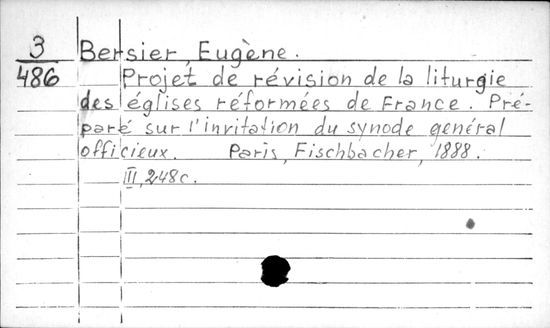 3 Bersier, Eugène.
486 Projet de révision de la liturgie
des églises réformées de France. Pré-
paré sur l'invitation du synode général
officieux. Paris, Fischbacher, 1888.
III, 248c.